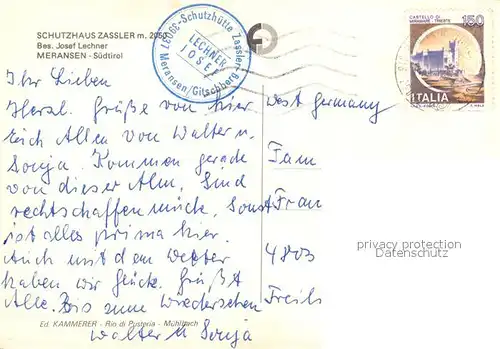 SCHUTZHAUS ZASSLER m. 2050
Bes. Josef Lechner
MERANSEN - Südtirol
39037 - Schutzhütte Zassler
LECHNER
JOSEF
Meransen/Gitschberg
CASTELLO DI
MIRAMARE - TRIESTE
150
ITALIA
Ihr Lieben
Herzl. Grüße von hier
Euch Allen von Walter u.
Sonja. Kommen gerade
von dieser Alm. Sind
rechtschaffen müde. Sonst
ist alles prima hier.
Auch mit dem Wetter
haben wir Glück. Grüßt
Alle. Bis zum Wiedersehen
Walter u Sonja
West Germany
Fam
Fran
4803
privacy protection
Datenschutz
Ed. KAMMERER - Rio di Pusteria - Mühlbach